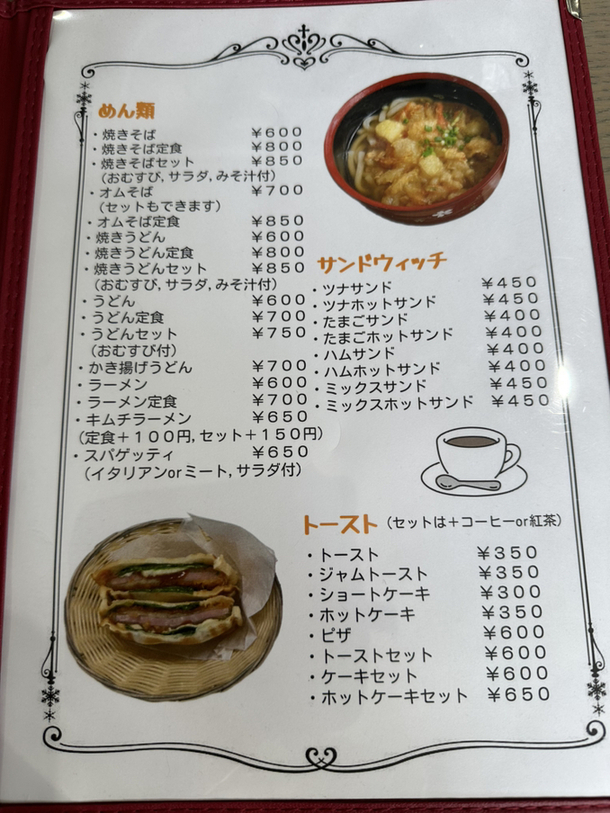 めん類
・焼きそば ¥600
・焼きそば定食 ¥800
・焼きそばセット ¥850
(おむすび,サラダ,みそ汁付)
・オムそば ¥700
(セットもできます)
・オムそば定食 ¥850
・焼きうどん ¥600
・焼きうどん定食 ¥800
・焼きうどんセット ¥850
(おむすび,サラダ,みそ汁付)
・うどん ¥600
・うどん定食 ¥700
・うどんセット ¥750
(おむすび付)
・かき揚げうどん ¥700
・ラーメン ¥600
・ラーメン定食 ¥700
・キムチラーメン ¥650
(定食+100円,セット+150円)
・スパゲッティ ¥650
(イタリアンorミート,サラダ付)
サンドウィッチ
・ツナサンド ¥450
・ツナホットサンド ¥450
・たまごサンド ¥400
・たまごホットサンド ¥400
・ハムサンド ¥400
・ハムホットサンド ¥400
・ミックスサンド ¥450
・ミックスホットサンド ¥450
トースト (セットは+コーヒーor紅茶)
・トースト ¥350
・ジャムトースト ¥350
・ショートケーキ ¥300
・ホットケーキ ¥350
・ピザ ¥600
・トーストセット ¥600
・ケーキセット ¥600
・ホットケーキセット ¥650